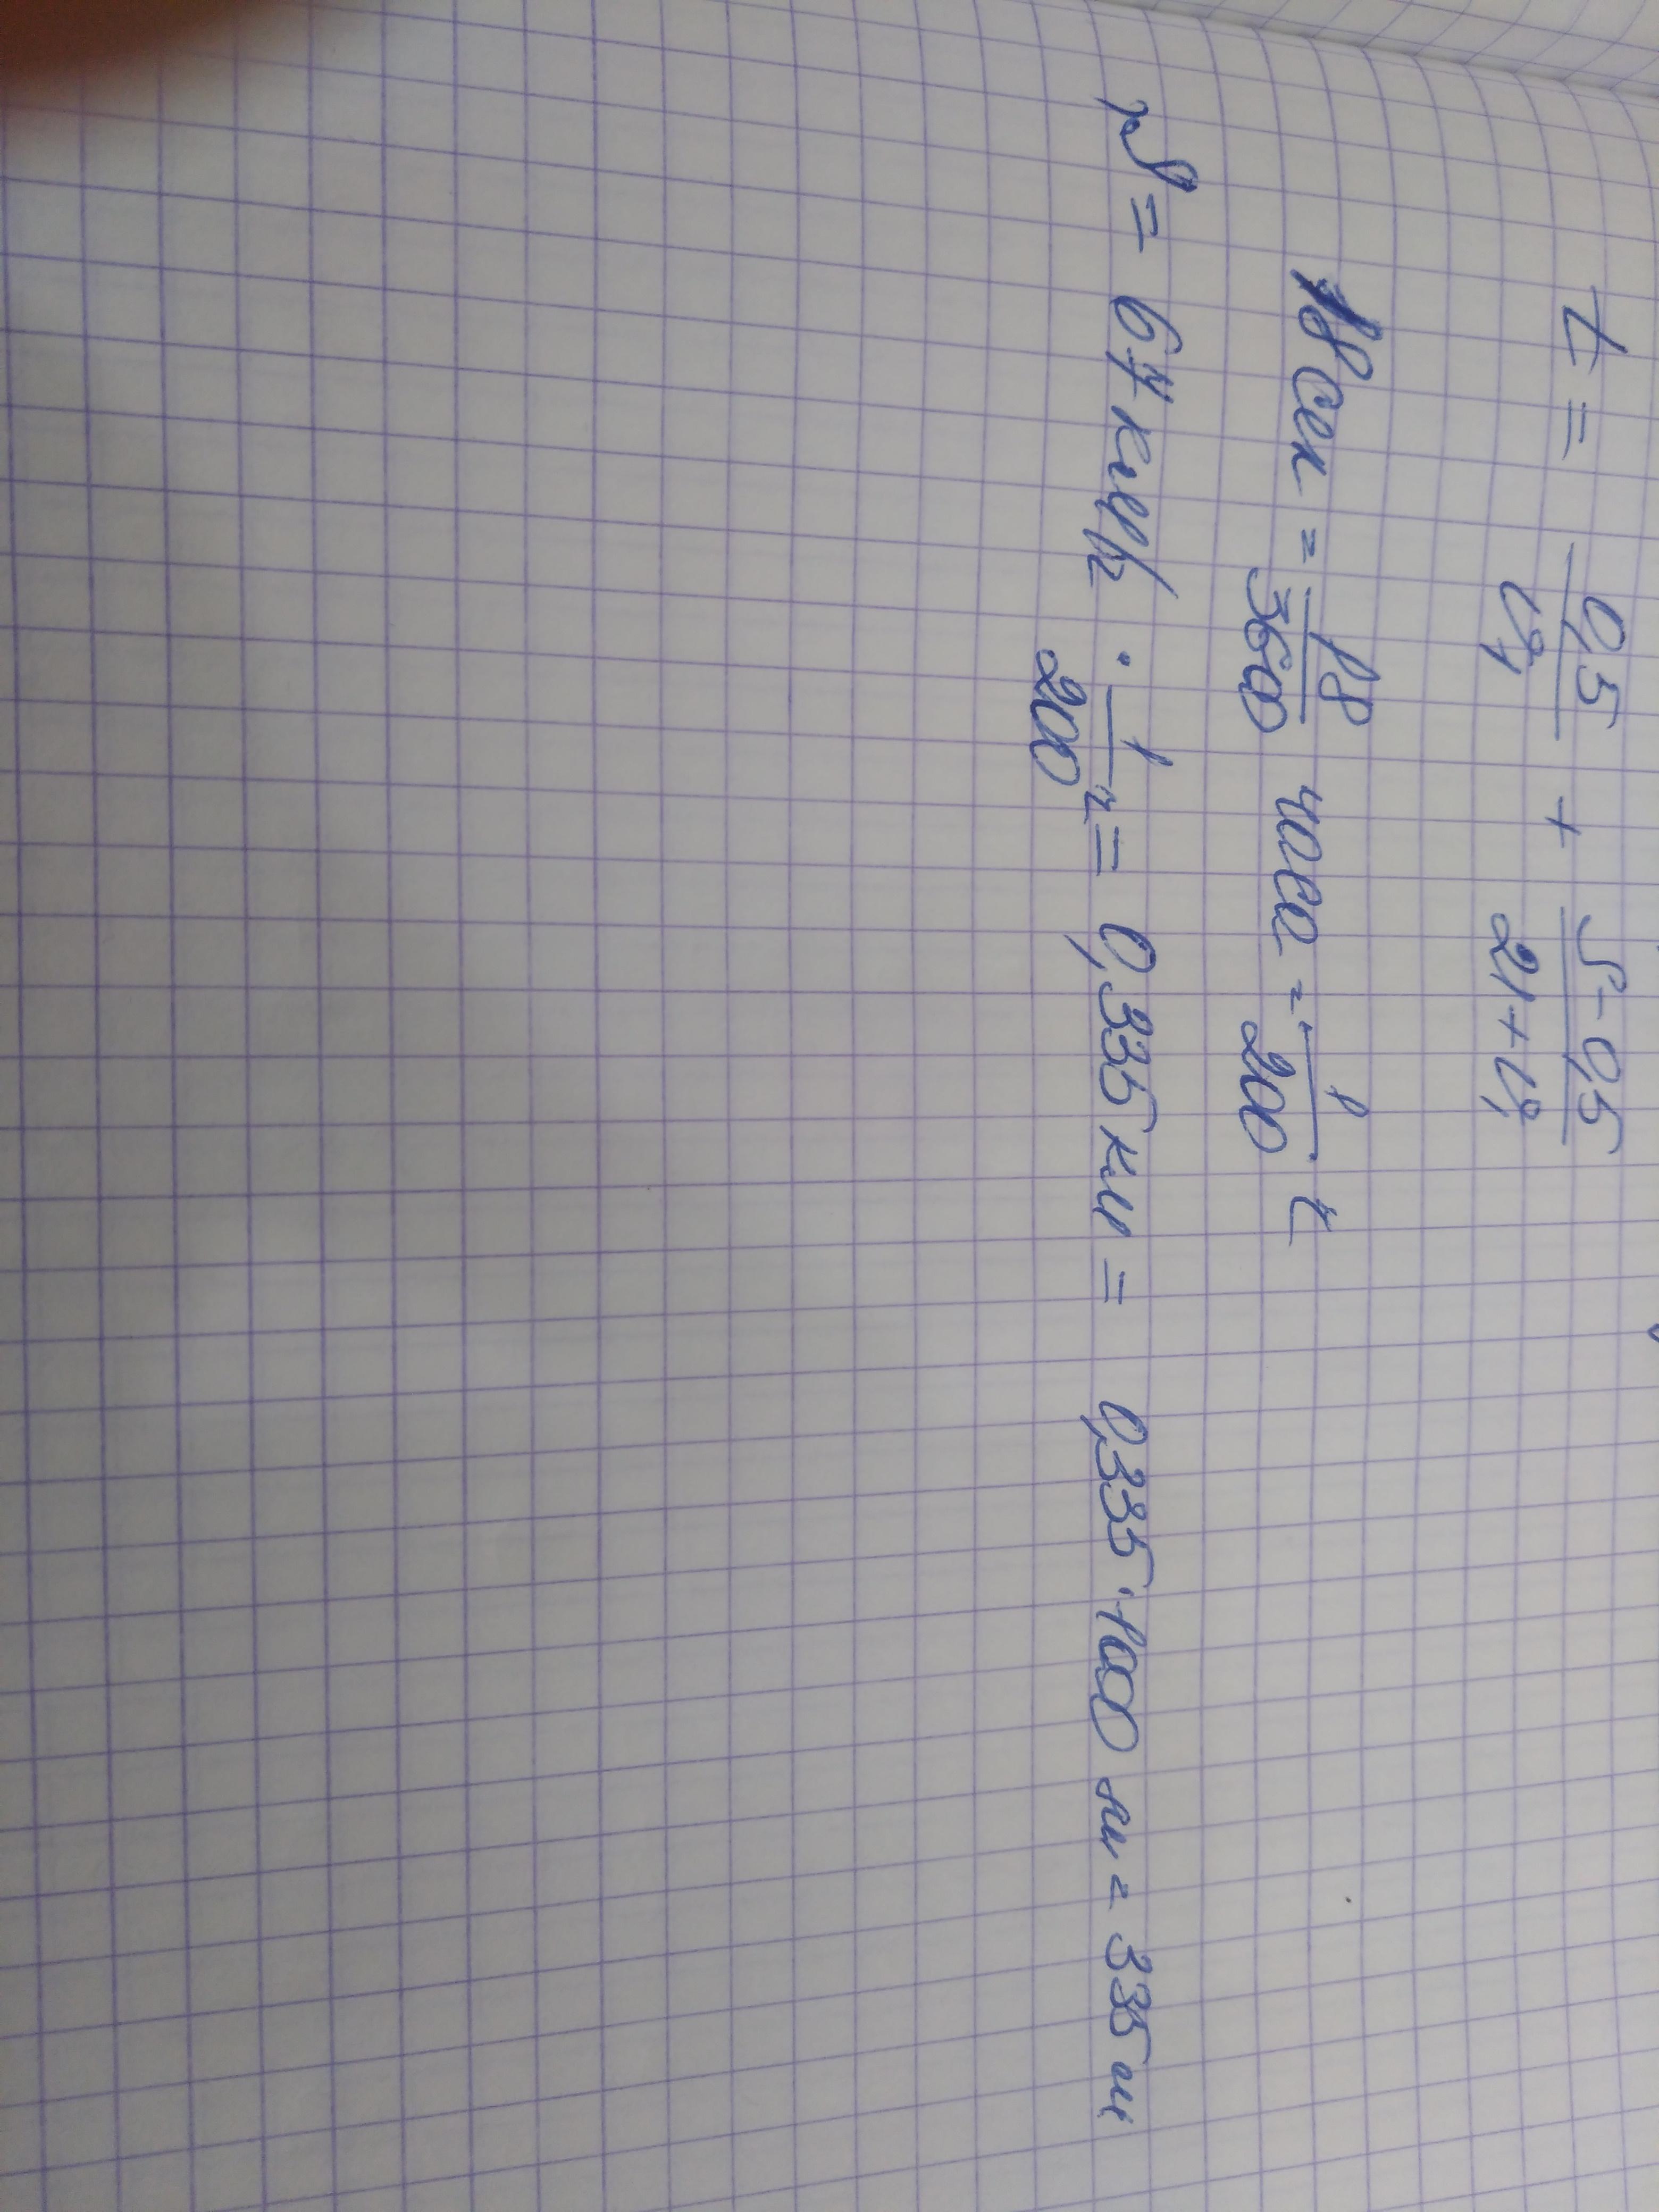 t = 0,5/v₁ + S-0,5/21+v₁
18 сек = 18/3600 часа = 1/200 ч
S = 67 км/ч · 1/200 ч = 0,335 км = 0,335·1000 м = 335 м